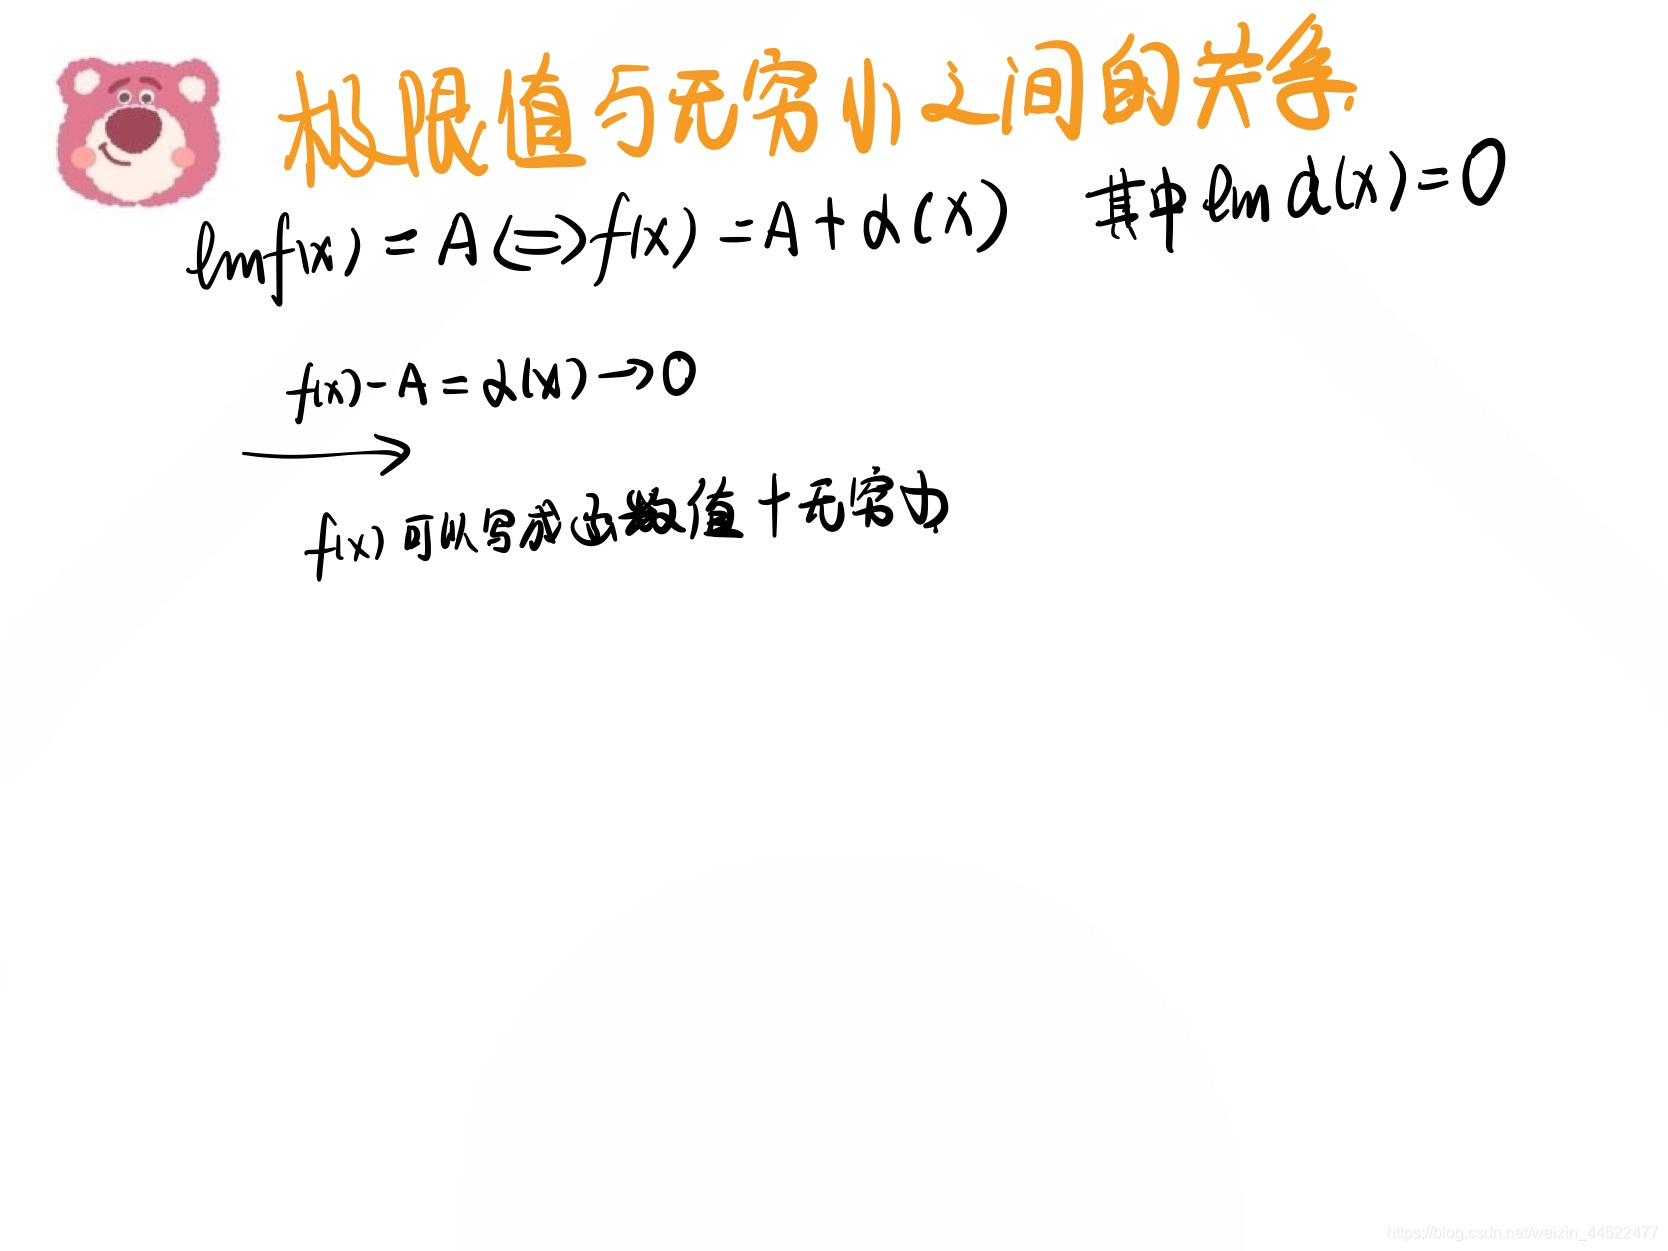 极限值与无穷小之间的关系
lim f(x) = A <=> f(x) = A + α(x) 其中 lim α(x) = 0
f(x) - A = α(x) → 0
→
f(x) 可以写成函数值 + 无穷小
https://blog.csdn.net/weixin_44522477